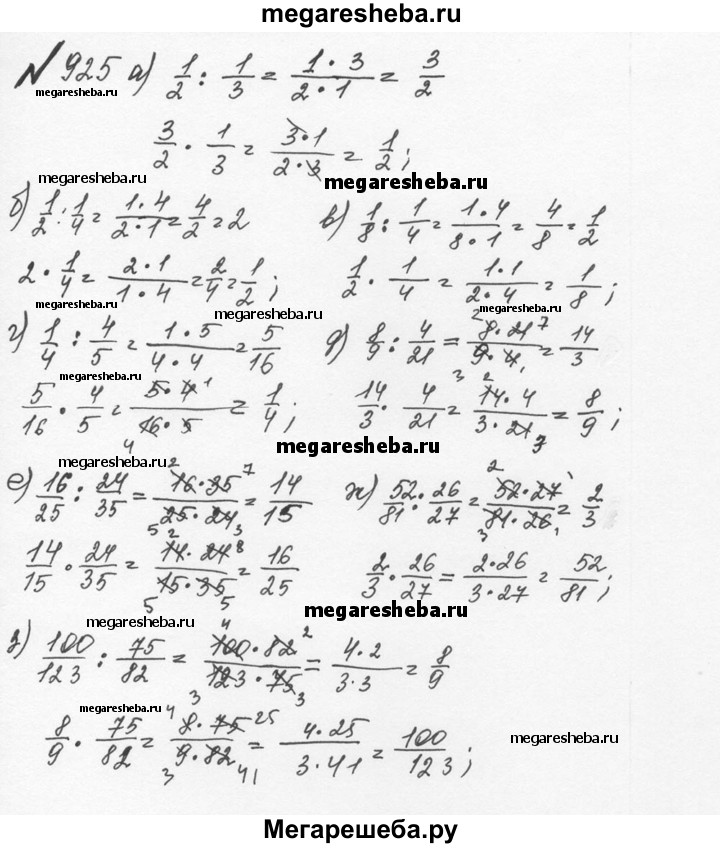 megaresheba.ru
№ 925 а) 1/2 : 1/3 = 1·3/2·1 = 3/2
megaresheba.ru
3/2 · 1/3 = 3·1/2·3 = 1/2;
megaresheba.ru megaresheba.ru
б) 1/2 : 1/4 = 1·4/2·1 = 4/2 = 2 в) 1/8 : 1/4 = 1·4/8·1 = 4/8 = 1/2
megaresheba.ru
2 · 1/4 = 2·1/1·4 = 2/4 = 1/2; 1/2 · 1/4 = 1·1/2·4 = 1/8;
megaresheba.ru megaresheba.ru
г) 1/4 : 4/5 = 1·5/4·4 = 5/16 д) 8/9 : 4/21 = 8·21/9·4 = 14/3
megaresheba.ru
5/16 · 4/5 = 5·4/16·5 = 1/4; 14/3 · 4/21 = 14·4/3·21 = 8/9;
megaresheba.ru
megaresheba.ru
е) 16/25 : 24/35 = 16·35/25·24 = 14/15 ж) 52/81 : 26/27 = 52·27/81·26 = 2/3
14/15 · 24/35 = 14·24/15·35 = 16/25 2/3 · 26/27 = 2·26/3·27 = 52/81;
megaresheba.ru megaresheba.ru
з) 100/123 : 75/82 = 100·82/123·75 = 4·2/3·3 = 8/9
megaresheba.ru
8/9 · 75/82 = 8·75/9·82 = 4·25/3·41 = 100/123;
megaresheba.ru
Мегарешеба.ру